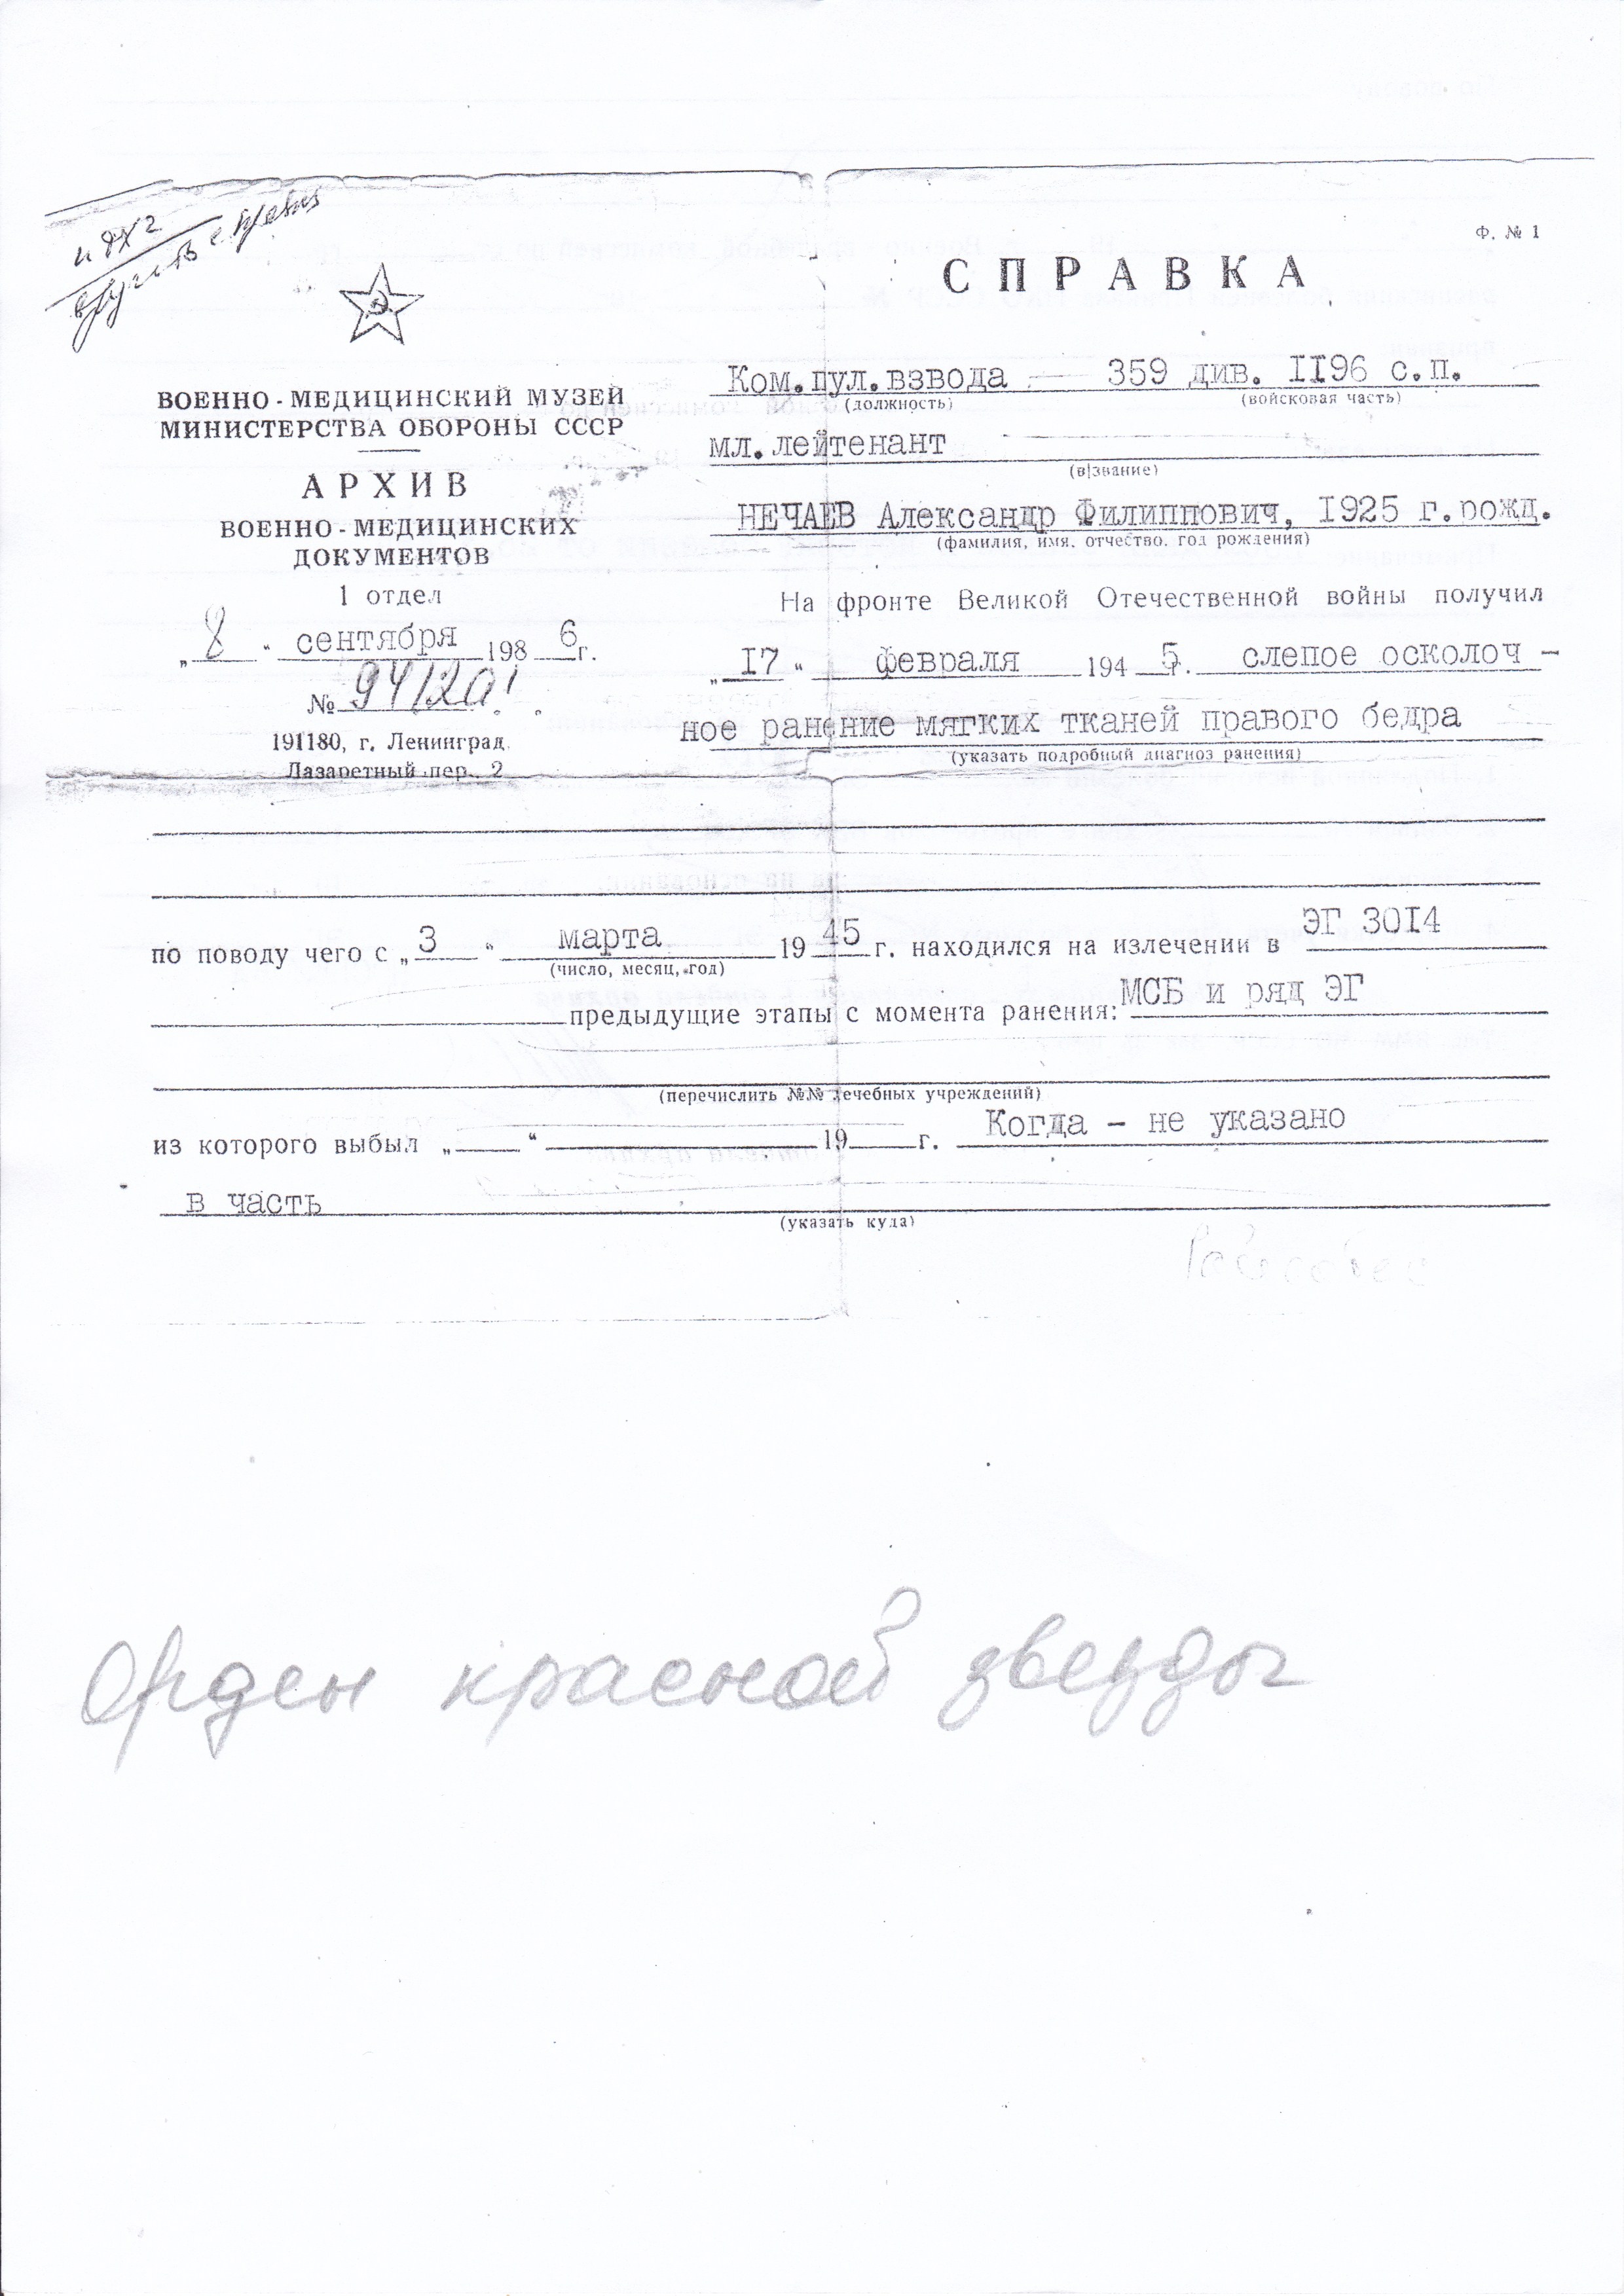 Ф. № 1
СПРАВКА
ВОЕННО-МЕДИЦИНСКИЙ МУЗЕЙ
МИНИСТЕРСТВА ОБОРОНЫ СССР
АРХИВ
ВОЕННО-МЕДИЦИНСКИХ
ДОКУМЕНТОВ
1 отдел
„8“ сентября 1986г.
№
191180, г. Ленинград
Лазаретный пер., 2
Ком.пул.взвода — 359 див. II96 с.п.
(должность) (войсковая часть)
мл.лейтенант
(в|звание)
НЕЧАЕВ Александр Филиппович, I925 г.рожд.
(фамилия, имя, отчество, год рождения)
На фронте Великой Отечественной войны получил
„I7“ февраля 1945. слепое осколоч-
ное ранение мягких тканей правого бедра
(указать подробный диагноз ранения)
по поводу чего с „3“ марта 1945 г. находился на излечении в ЭГ 30I4
(число, месяц, год)
предыдущие этапы с момента ранения: МСБ и ряд ЭГ
(перечислить №№ лечебных учреждений)
из которого выбыл „ “ 19 г. Когда - не указано
в часть
(указать куда)
Орден красной звезды